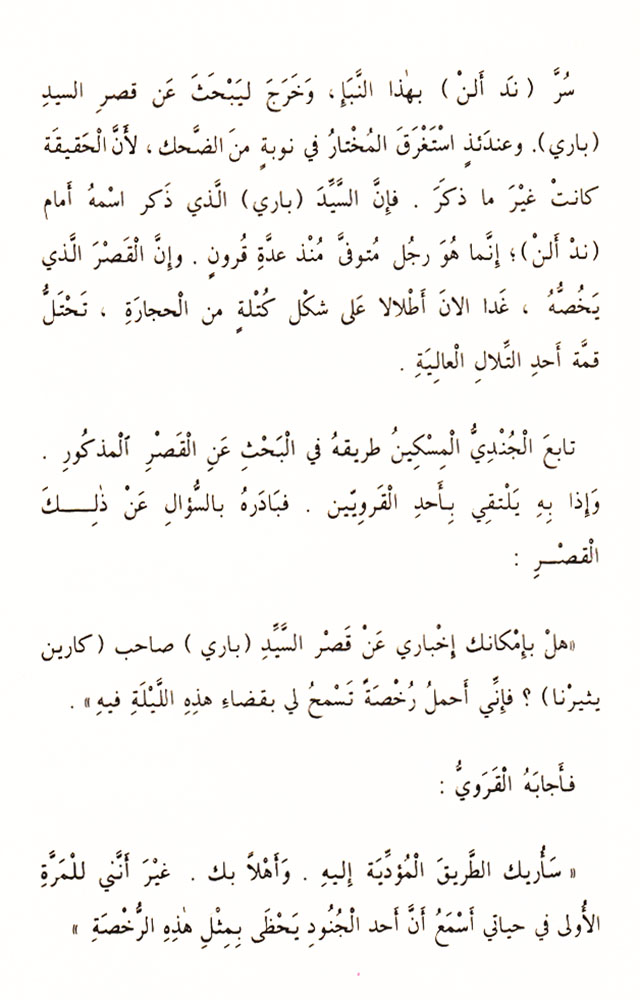 سُرَّ ( ندَ أَلنْ ) بهٰذا النَّبَإِ، وَخَرَجَ ليَبْحَثَ عَن قصرِ السيدِ
(باري). وعندَئذٍ اسْتَغْرَقَ المُخْتارُ في نوبةٍ منَ الضَّحك ، لأَنَّ الْحَقيقَة
كانتْ غيْرَ ما ذكرَ . فإنَّ السَّيِّدَ (باري) الَّذي ذَكر اسْمهُ أَمام
(ندْ أَلنْ)؛ إنَّما هُوَ رجُل مُتوفىًّ مُنْذ عدَّةِ قُرونٍ . وإنَّ الْقَصْرَ الَّذي
يَخُصُّهُ ، غَدا الانَ أَطْلالا عَلى شكْل كُتْلةٍ من الْحجارَةِ ، تَحْتَلُّ
قمَّة أَحدِ التِّلالِ الْعالِيَةِ .
تابعَ الْجُنْدِيُّ الْمِسْكِينُ طريقهُ في الْبَحْثِ عَنِ الْقَصْرِ ٱلْمذكُورِ .
وَإِذا بِهِ يَلْتقِي بِأَحدِ الْقَرويّين . فبَادَرهُ بالسُّؤالِ عَنْ ذٰلِــــكَ
الْقصْــرِ :
«هلْ بإمْكانك إخْباري عَنْ قَصْر السَّيِّدِ (باري ) صاحب (كارين
يثيرْنا) ؟ فإنِّي أَحملُ رُخْصَةً تَسْمحُ لي بقضاءِ هذِهِ اللَّيْلَةِ فيهِ» .
فأَجابَهُ الْقَرَويُّ :
« سَأُريك الطَّريقَ الْمُؤدِّيَة إليهِ . وَأَهْلاً بك . غيْرَ أَنَّني للْمَرَّةِ
الأُولى في حياتي أَسْمَعُ أَنَّ أَحد الْجُنُودِ يَحْظَى بِمِثْلِ هٰذِهِ الرُّخْصَةِ »